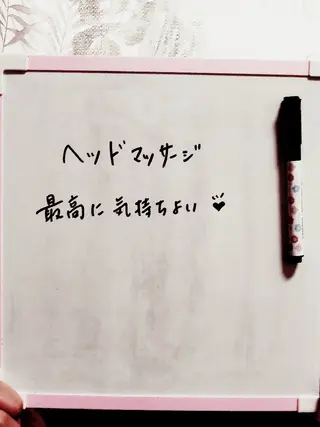 ヘッドマッサージ
最高に気持ちよい